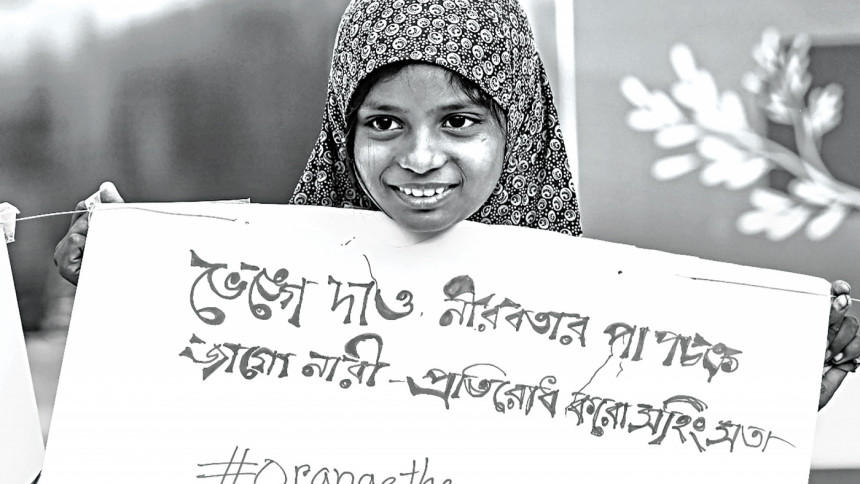 ভেঙ্গে দাও নীরবতার পাপচক্র
জাগো নারী - প্রতিরোধ করো সহিংসতা
#orangethe